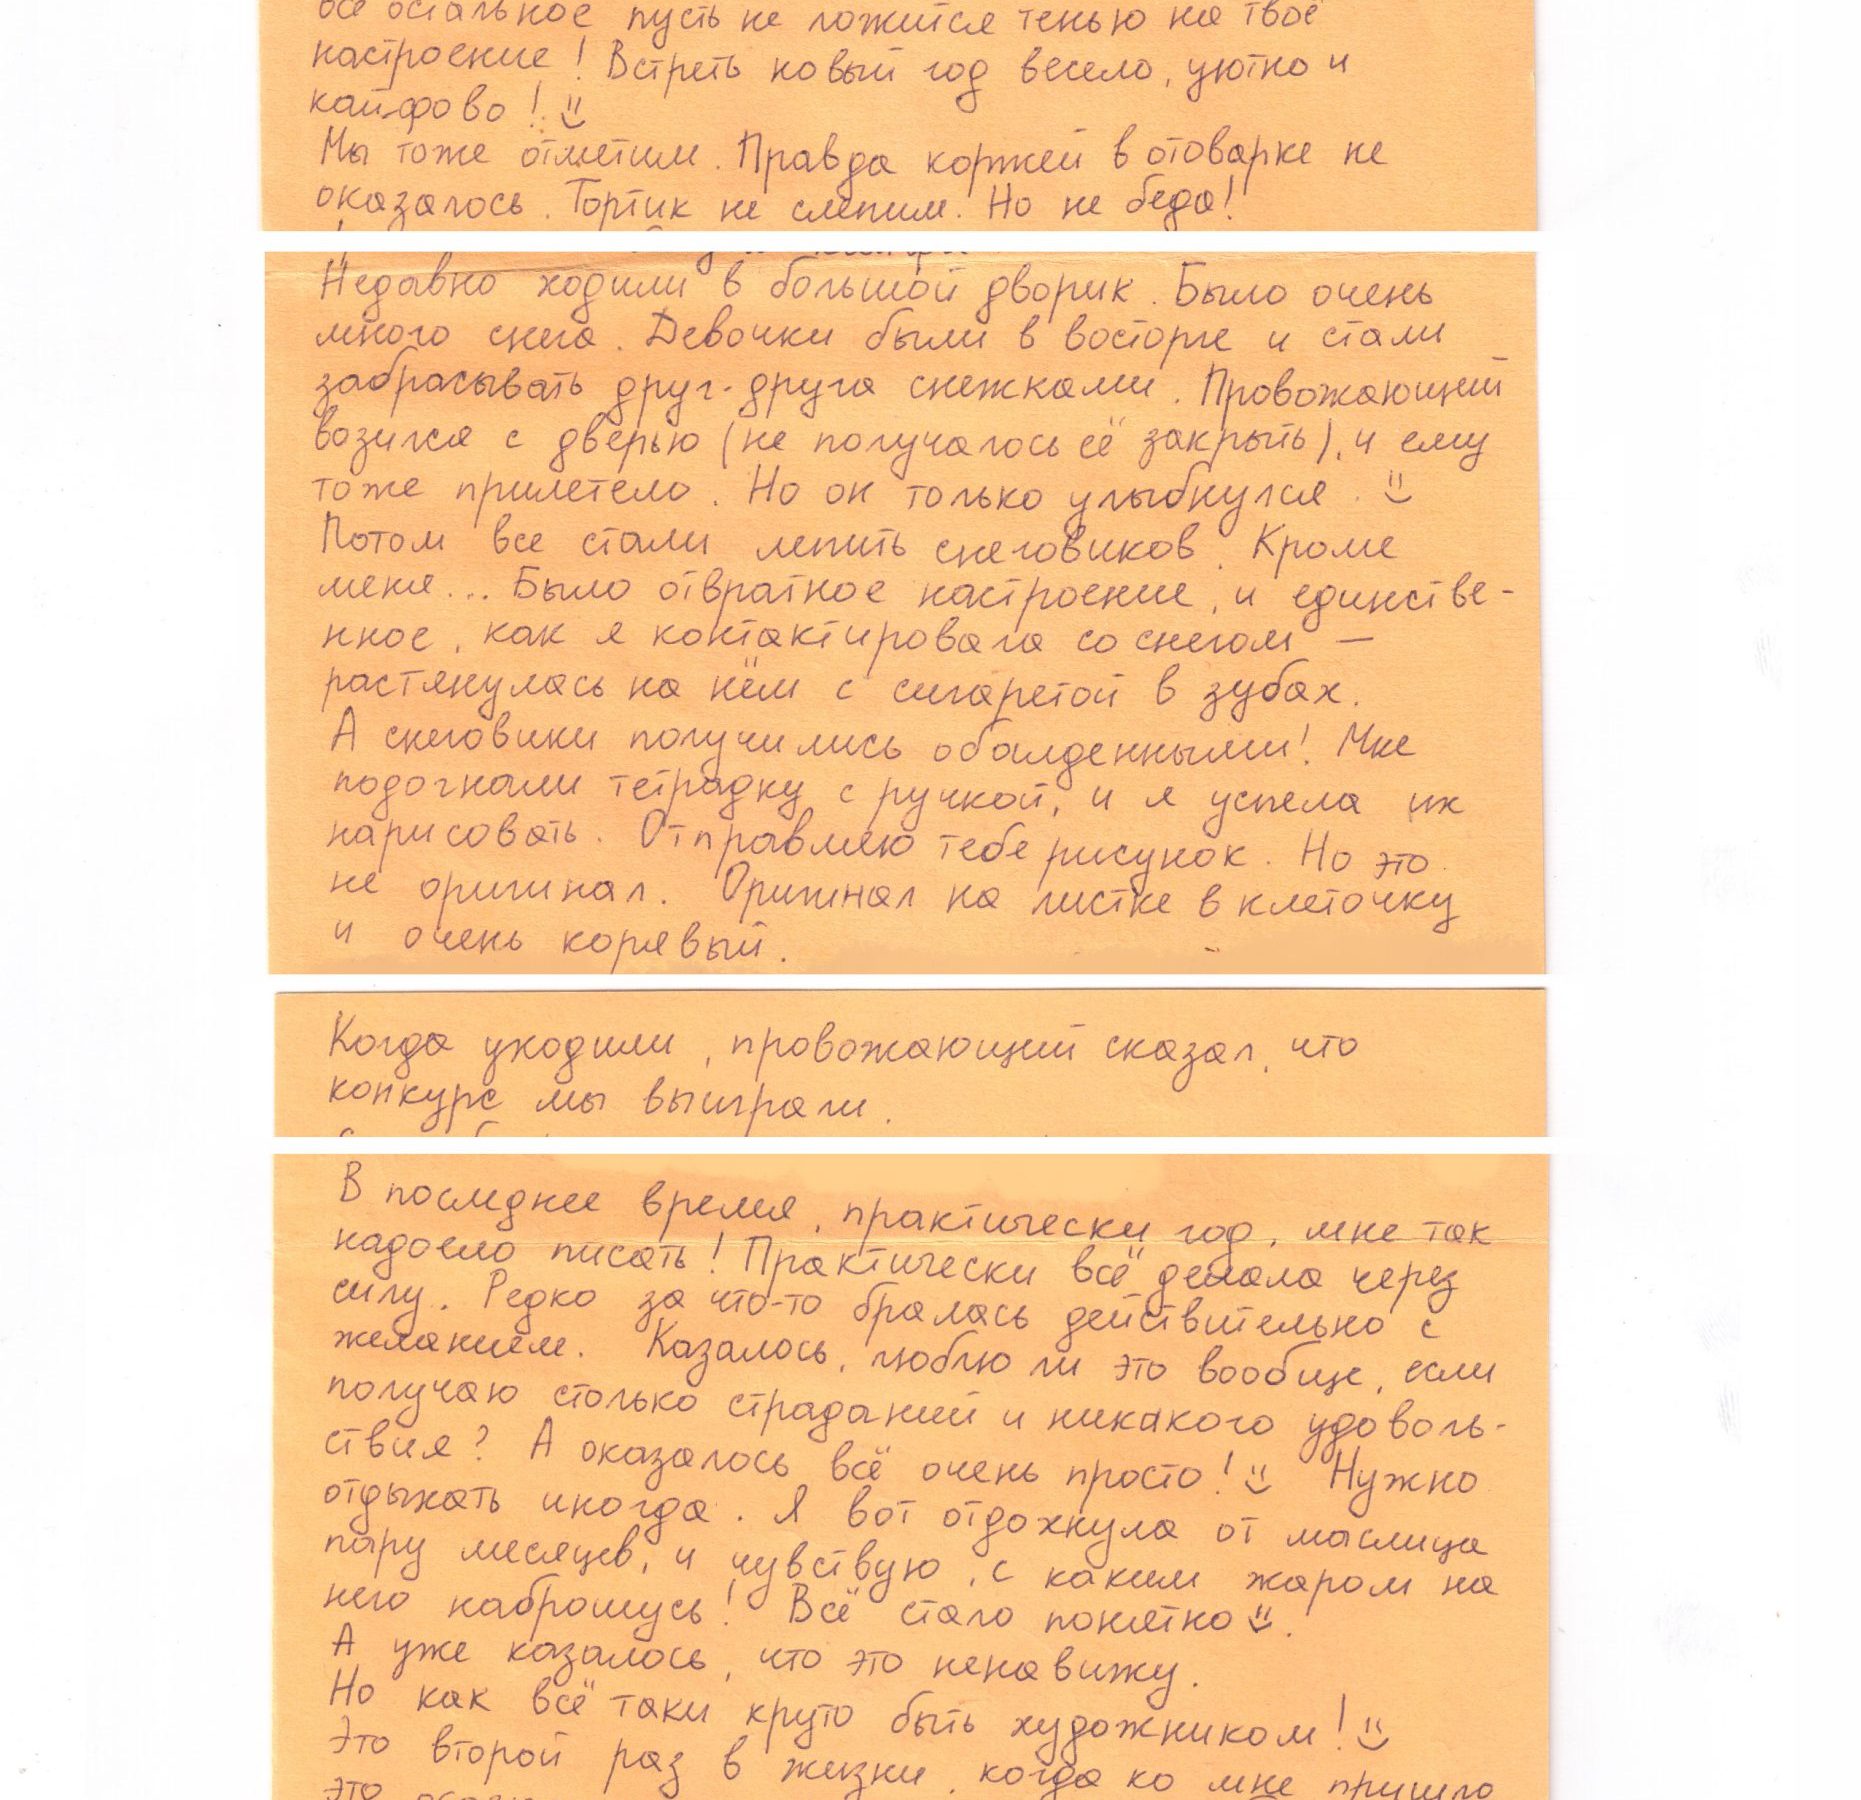 всё остальное пусть не ложится тенью на твоё
настроение! Встреть новый год весело, уютно и
кайфово!
Мы тоже отметим. Правда коржей в отоварке не
оказалось. Тортик не слепим. Но не беда!
Недавно ходили в большой дворик. Было очень
много снега. Девочки были в восторге и стали
забрасывать друг-друга снежками. Провожающий
возился с дверью (не получалось её закрыть), и ему
тоже прилетело. Но он только улыбнулся.
Потом все стали лепить снеговиков. Кроме
меня... Было отвратное настроение, и единстве-
нное, как я контактировала со снегом —
растянулась на нём с сигаретой в зубах.
А снеговики получились обалденными! Мне
подогнали тетрадку с ручкой, и я успела их
нарисовать. Отправляю тебе рисунок. Но это
не оригинал. Оригинал на листке в клеточку
и очень корявый.
Когда уходили, провожающий сказал, что
конкурс мы выиграли.
В последнее время, практически год, мне так
надоело писать! Практически всё делала через
силу. Редко за что-то бралась действительно с
желанием. Казалось, люблю ли это вообще, если
получаю столько страданий и никакого удоволь-
ствия? А оказалось всё очень просто! Нужно
отдыхать иногда. Я вот отдохнула от маслица
пару месяцев, и чувствую, с каким жаром на
него наброшусь! Всё стало понятно.
А уже казалось, что это ненавижу.
Но как всё таки круто быть художником!
Это второй раз в жизни, когда ко мне пришло
это